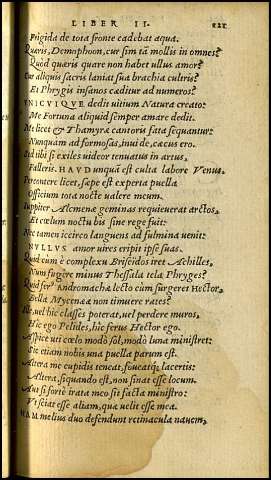 LIBER II. 221
Frigida de tota fronte cadebat aqua.
Quæris, Demophoon, cur sim tã mollis in omnes?
Quod quæris quare non habet ullus amor?
Cur aliquis sacris laniat sua brachia cultris?
Et Phrygis insanos cæditur ad numeros?
VNICVIQVE dedit uitium Natura creato:
Me Fortuna aliquid semper amare dedit.
Me licet & Thamyræ cantoris fata sequantur:
Nunquam ad formosas, inuide, cæcus ero.
Sed tibi si exiles uideor tenuatus in artus,
Falleris. HAVD unquã est culta labore Venus.
Percontere licet, sæpe est experta puella
Officium tota nocte ualere meum.
Iuppiter Alcmenæ geminas requieuerat arctos,
Et cœlum noctu bis sine rege fuit:
Nec tamen iccirco languens ad fulmina uenit:
NVLLVS amor uires eripit ipse suas.
Quid cum è complexu Briseidos iret Achilles,
Num fugêre minus Thessala tela Phryges?
Quid ferꝰ Andromachæ lecto cùm surgeret Hector,
Bella Mycenææ non timuere rates?
Hic, uel hic classes poterat, uel perdere muros,
Hic ego Pelides, hic ferus Hector ego.
Aspice uti cœlo modò sol, modò luna ministret:
Sic etiam nobis una puella parum est.
Altera me cupidis teneat, foueatq; lacertis:
Altera, siquando est, non sinat esse locum.
Aut si fortè irata meo sit facta ministro:
Vt sciat esse aliam, quæ uelit esse mea.
NAM melius duo defendunt retinacula nauem,